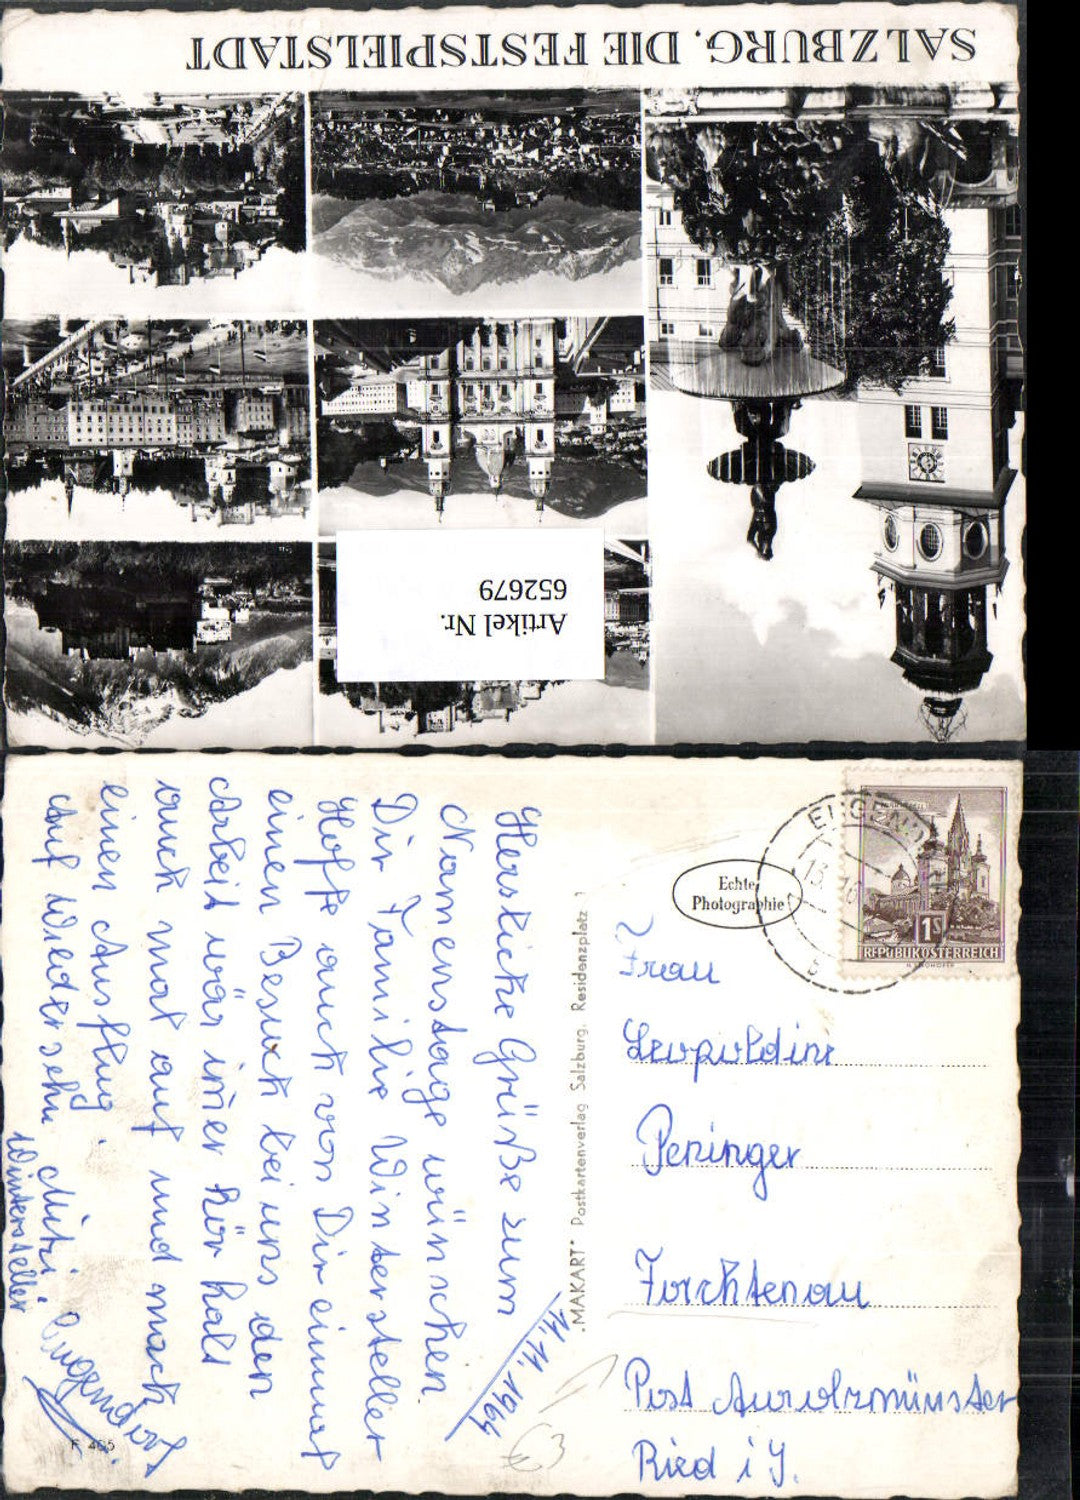 SALZBURG, DIE FESTSPIELSTADT
Artikel Nr.
652679
Herzliche Grüße zum
Namenstage wünschen
Dir Familie Wintersteller
Hoffe auch von Dir einmal
einen Besuch bei uns den
Arbeit wär imer hör halt
auch mal auf und mach
einen Ausflug.
Auf Wiedersehn Mitzi
Wintersteller
Eugendorf
11.11.1964
F 405
"MAKART" Postkartenverlag Salzburg, Residenzplatz
Echte
Photographie
EUGEN
13.
REPUBLIK ÖSTERREICH
1S
Frau
Leopoldine
Peninger
Forchtenau
Post Aurolzmünster
Ried i J.
€3